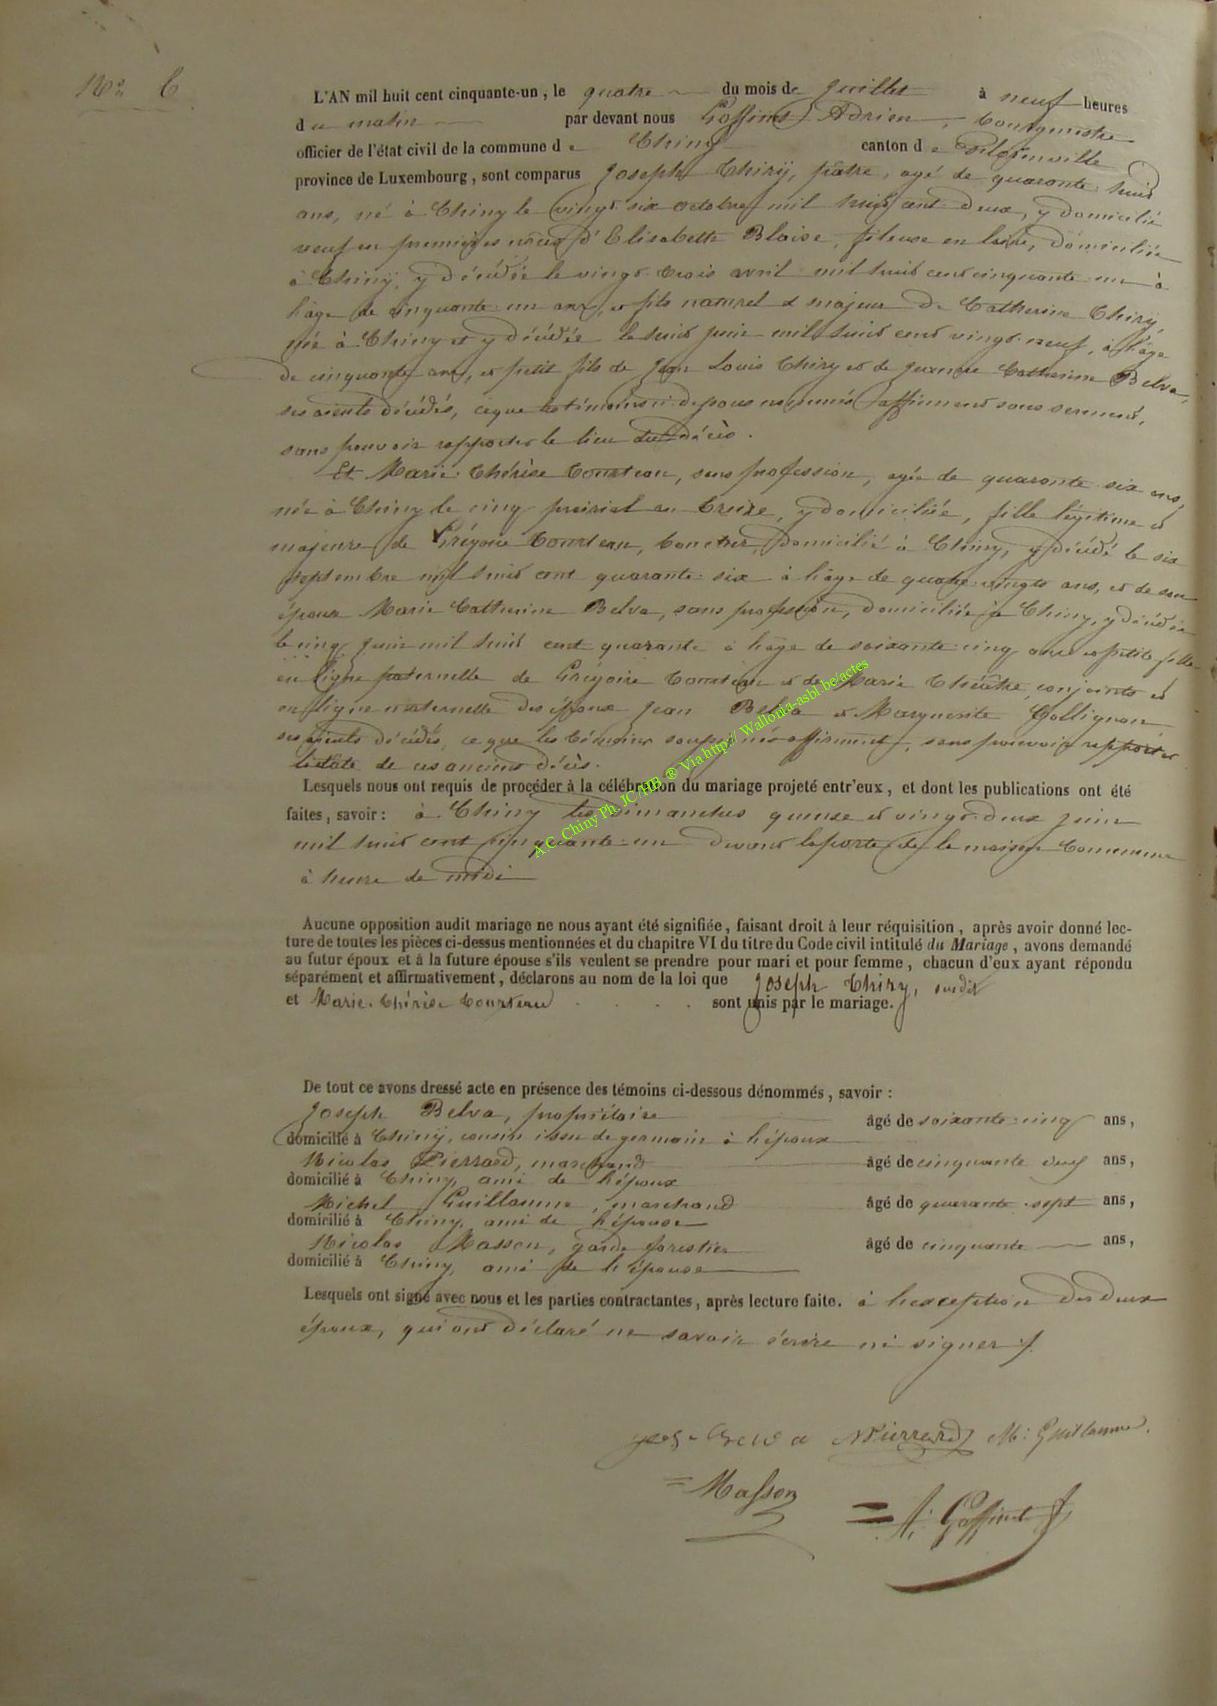 N° 6
L'AN mil huit cent cinquante-un, le quatre du mois de Juillet à neuf heures
du matin par devant nous Goffinet Adrien, bourgmestre
officier de l'état civil de la commune de Chiny canton de Florenville
province de Luxembourg, sont comparus Joseph Thiry, pâtre, agé de quarante huit
ans, né à Chiny le vingt six octobre mil huit cent deux, y domicilié
veuf en premières nôces d'Elisabeth Blaise, fileuse en laine, domiciliée
à Chiny, y décédée le vingt trois avril mil huit cent cinquante un à
l'âge de cinquante un ans, et fils naturel & majeur de Catherine Thiry,
née à Chiny et y décédée le huit juin mil huit cent vingt neuf, à l'âge
de cinquante ans, et petit fils de Jean Louis Thiry et de Jeanne Catherine Belva,
ses aieuls décédés, ce que les témoins ci-dessous nommés affirment sous serment,
sans pouvoir rapporter le lieu du décès.
Et Marie Thérèse Courteau, sans profession, agée de quarante six ans,
née à Chiny le cinq prairial an treize, y domiciliée, fille légitime et
majeure de Grégoire Courteau, domicilié à Chiny, y décédé le six
septembre mil huit cent quarante six à l'âge de quatre-vingts ans, et de son
épouse Marie Catherine Belva, sans profession, domiciliée à Chiny, y décédée
le cinq juin mil huit cent quarante à l'âge de soixante cinq ans et petite fille
en ligne paternelle de Grégoire Courteau et de Marie conjoints et
en ligne maternelle des époux Jean Belva et Marguerite Gollignon
ses aieuls décédés, ce que les témoins soussignés affirment, sans pouvoir rapporter
la date de ces anciens décès.
Lesquels nous ont requis de procéder à la célébration du mariage projeté entr'eux, et dont les publications ont été
faites, savoir : à Chiny les dimanches quinze et vingt-deux juin
mil huit cent cinquante-un devant la porte de la maison Commune
à heure de midi
Aucune opposition audit mariage ne nous ayant été signifiée, faisant droit à leur réquisition, après avoir donné lec-
ture de toutes les pièces ci-dessus mentionnées et du chapitre VI du titre du Code civil intitulé du Mariage, avons demandé
au futur époux et à la future épouse s'ils veulent se prendre pour mari et pour femme, chacun d'eux ayant répondu
séparément et affirmativement, déclarons au nom de la loi que Joseph Thiry, susdit
et Marie-Thérèse Courteau sont unis par le mariage.
De tout ce avons dressé acte en présence des témoins ci-dessous dénommés, savoir :
Joseph Belva, propriétaire âgé de soixante-cinq ans,
domicilié à Chiny, cousin issu de germain à l'époux
Nicolas Pierrard, marchand âgé de cinquante deux ans,
domicilié à Chiny, ami de l'époux
Michel Guillaume, marchand âgé de quarante-sept ans,
domicilié à Chiny, ami de l'épouse
Nicolas Masson, garde forestier âgé de cinquante ans,
domicilié à Chiny, ami de l'épouse
Lesquels ont signé avec nous et les parties contractantes, après lecture faite. à l'exception des deux
époux, qui ont déclaré ne savoir écrire ni signer
Belva NPierrard M: Guillaume
Masson A: Goffinet
A.C. Chiny Ph. JC/HB ® Via http://Wallonia-asbl.be/actes